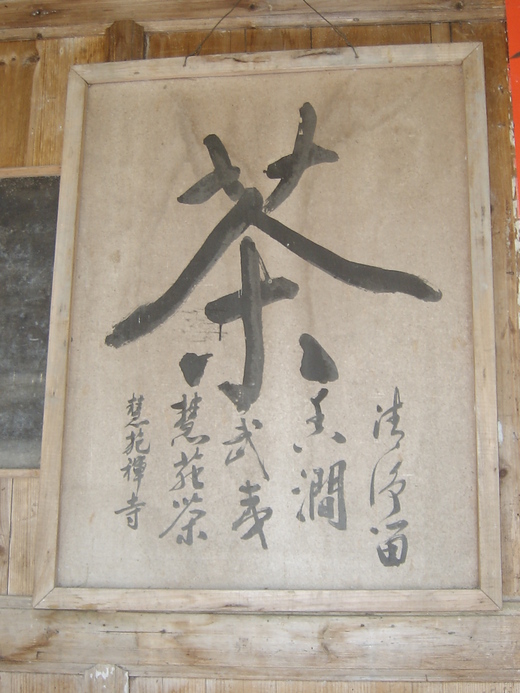 茶
清淨留
香澗
武夷
慧苑茶
慧苑禪寺